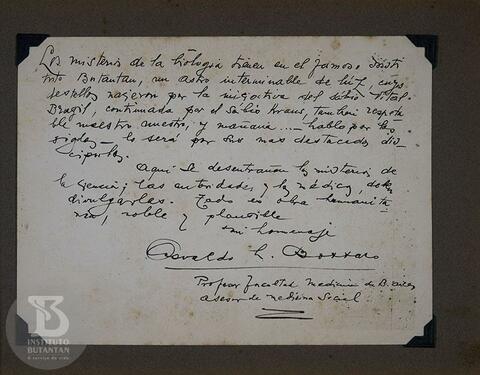 Los misterios de la biología tienen en el famoso Insti
tuto Butantan, un astro interminable de luz, cuyos
destellos nacieron por la iniciativa del sabio Vital-
Brazil, continuada por el Sabio Kraus, tambien respeta
ble maestro nuestro, y mañana ... — hablo por los
siglos — lo será por sus mas destacados dis
cipulos.
Aqui se desentrañan los misterios de
la ciencia; las autoridades y los médicos, deben
divulgarlas. Todo es obra humanita
ria, noble y plausible
mi homenaje
Osvaldo L. Bottaro
Profesor Facultad Medicina de B. Aires
Asesor de Medicina Social
INSTITUTO
BUTANTAN
A serviço da vida